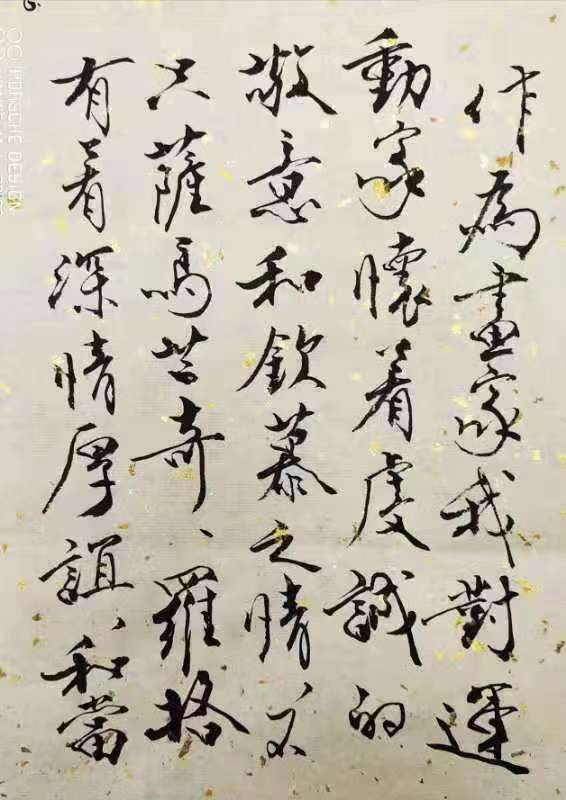 作為畫家我對運
動家懷着虔誠的
敬意和欽慕之情不
只薩馬兰奇、羅格
有着深情厚誼、和當
PORSCHE DESIGN